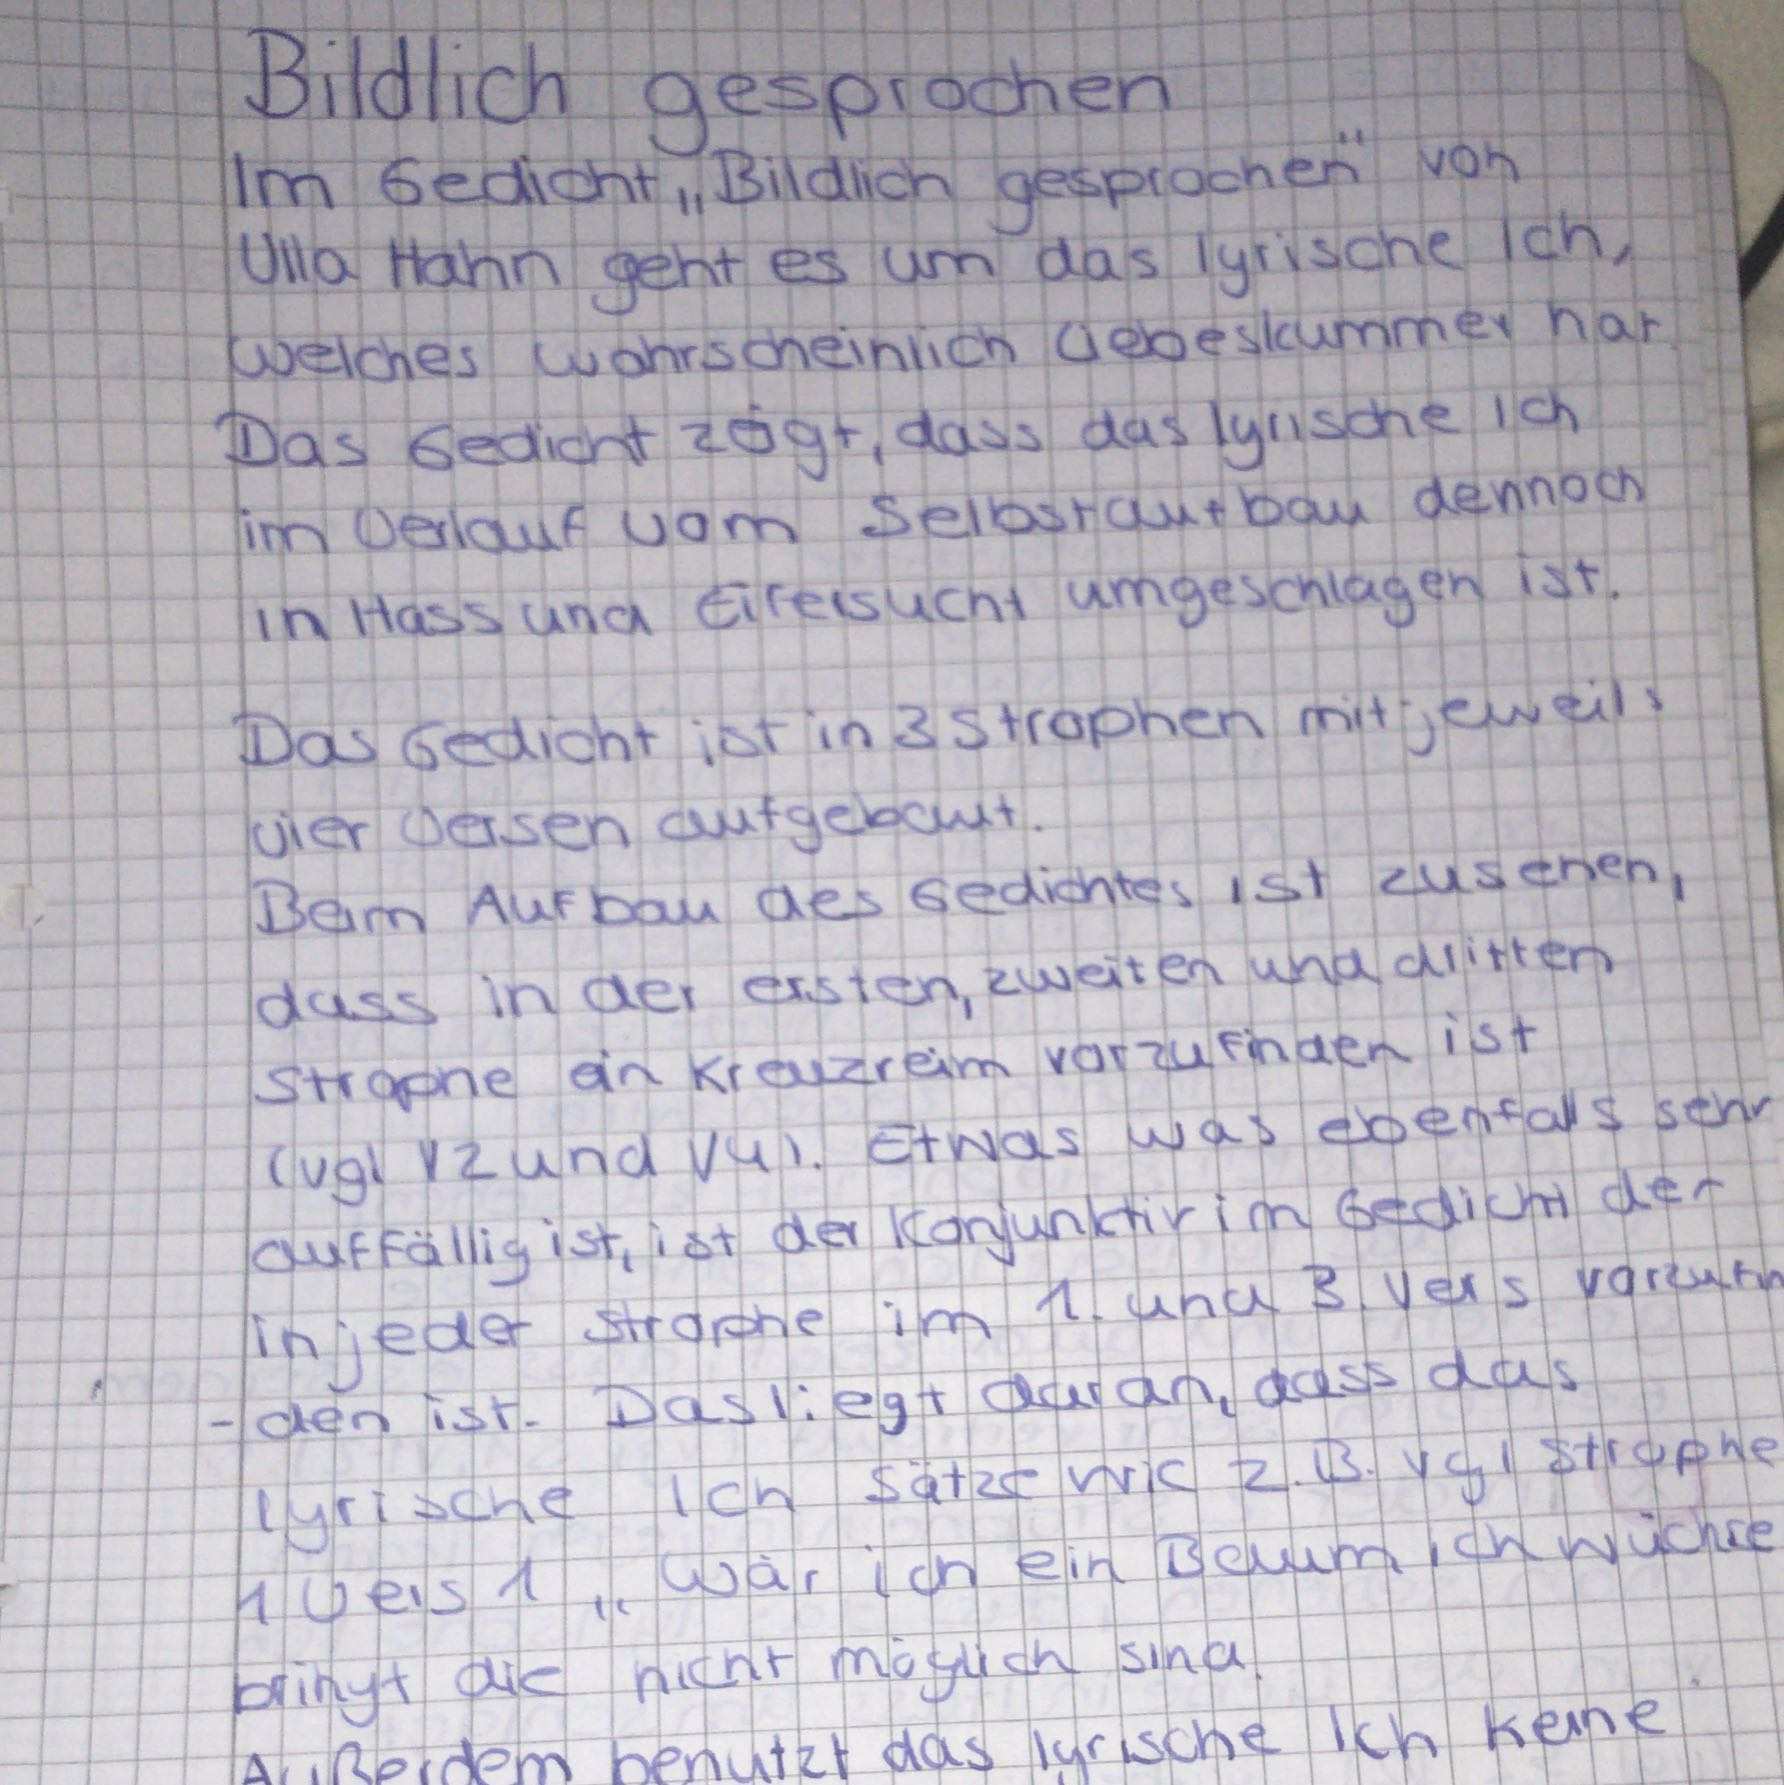 Bildlich gesprochen
Im Gedicht „Bildlich gesprochen" von
Ulla Hahn geht es um das lyrische Ich,
welches wahrscheinlich Liebeskummer hat.
Das Gedicht zeigt, dass das lyrische Ich
im Verlauf vom Selbstaufbau dennoch
in Hass und Eifersucht umgeschlagen ist.
Das Gedicht ist in 3 Strophen mit jeweils
vier Versen aufgebaut.
Beim Aufbau des Gedichtes ist zusehen,
dass in der ersten, zweiten und dritten
Strophe ein Kreuzreim vorzufinden ist
(vgl V2 und V4). Etwas was ebenfalls sehr
auffällig ist, ist der Konjunktiv im Gedicht der
in jeder Strophe im 1. und 3. Vers vorzufin
-den ist. Das liegt daran, dass das
lyrische Ich Sätze wie z.B. vgl Strophe
1 Vers 1 „Wär ich ein Baum ich wüchse
bringt die nicht möglich sind.
Außerdem benutzt das lyrische Ich keine